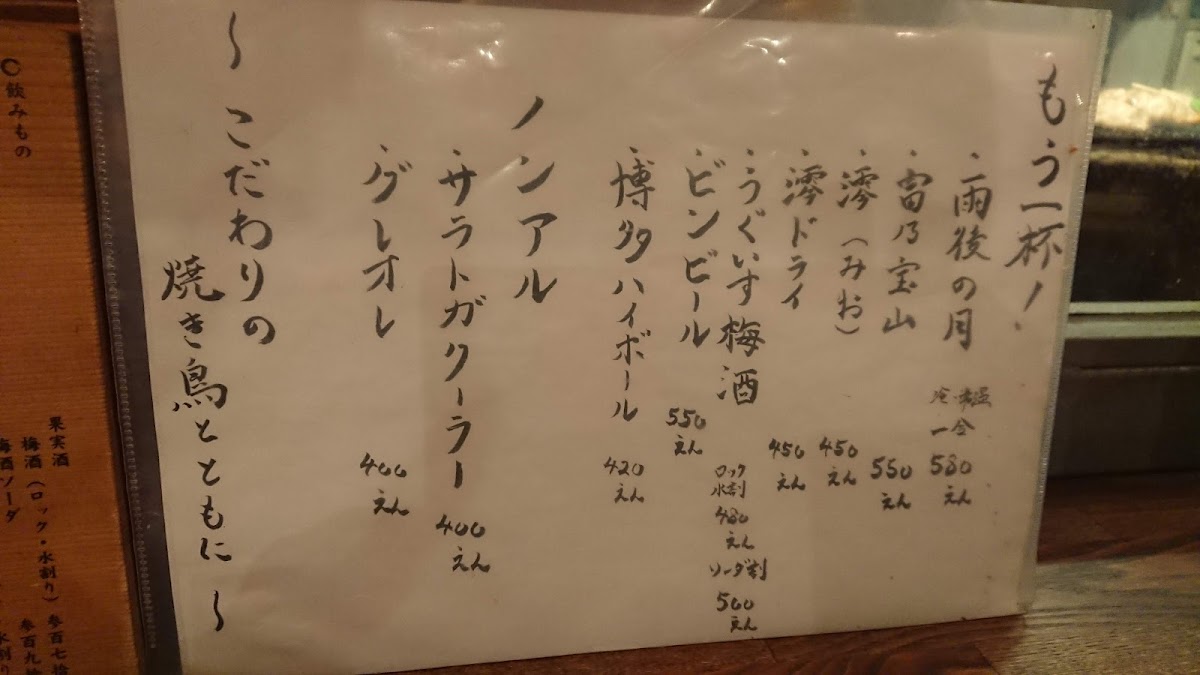 もう一杯！
・雨後の月
冷・常温
一合
580
えん
・富乃宝山
550
えん
・澪（みお）
450
えん
・澪ドライ
450
えん
・うぐいす梅酒
ロック
水割
480
えん
ソーダ割
500
えん
・ビンビール
550
えん
・博多ハイボール
420
えん
ノンアル
・サラトガクーラー
400
えん
・グレオレ
400
えん
〜こだわりの
焼き鳥とともに〜
果実酒
梅酒（ロック・水割り）参百七拾
梅酒ソーダ 参百九拾
〇飲みもの
水割り